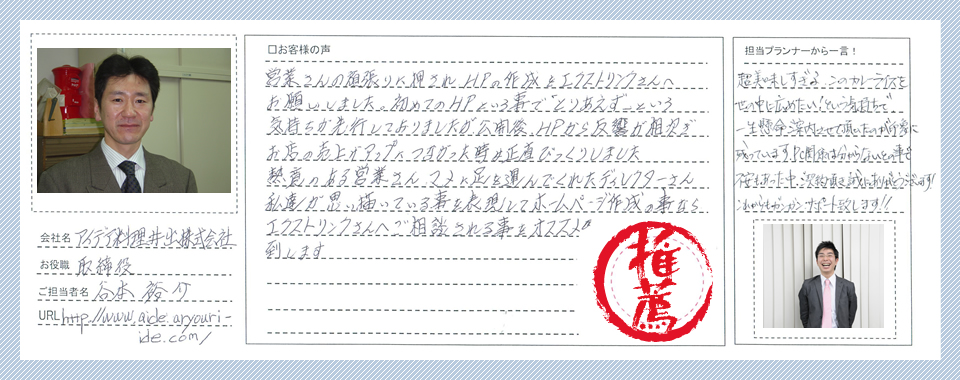 会社名 アイデア料理井出株式会社
お役職 取締役
ご担当者名 谷本 裕介
URL http://www.aide.aryouri-
ide.com/
□お客様の声
営業さんの頑張りに押され、HPの作成をエクストリンクさんへ
お願いしました。初めてのHPという事で"とりあえず"という
気持ちが先行しておりましたが公開後、HPから反響が相次ぎ
お店の売上がアップにつながった時は正直びっくりしました
熱意のある営業さん、マメに足を運んでくれたディレクターさん
私達が思い描いている事を表現してホームページ作成の事なら
エクストリンクさんへご相談される事をオススメ
致します
推薦
担当プランナーから一言!
超美味しすぎる、このカレーライスを
世の中に広めたい!という気持ちで
一生懸命ご案内させて頂いたのが印象に
残っています。PC関係は分からないとの事で
不安もあった中、ご契約頂き誠にありがとうございます!
これからもガンガンサポート致します!!